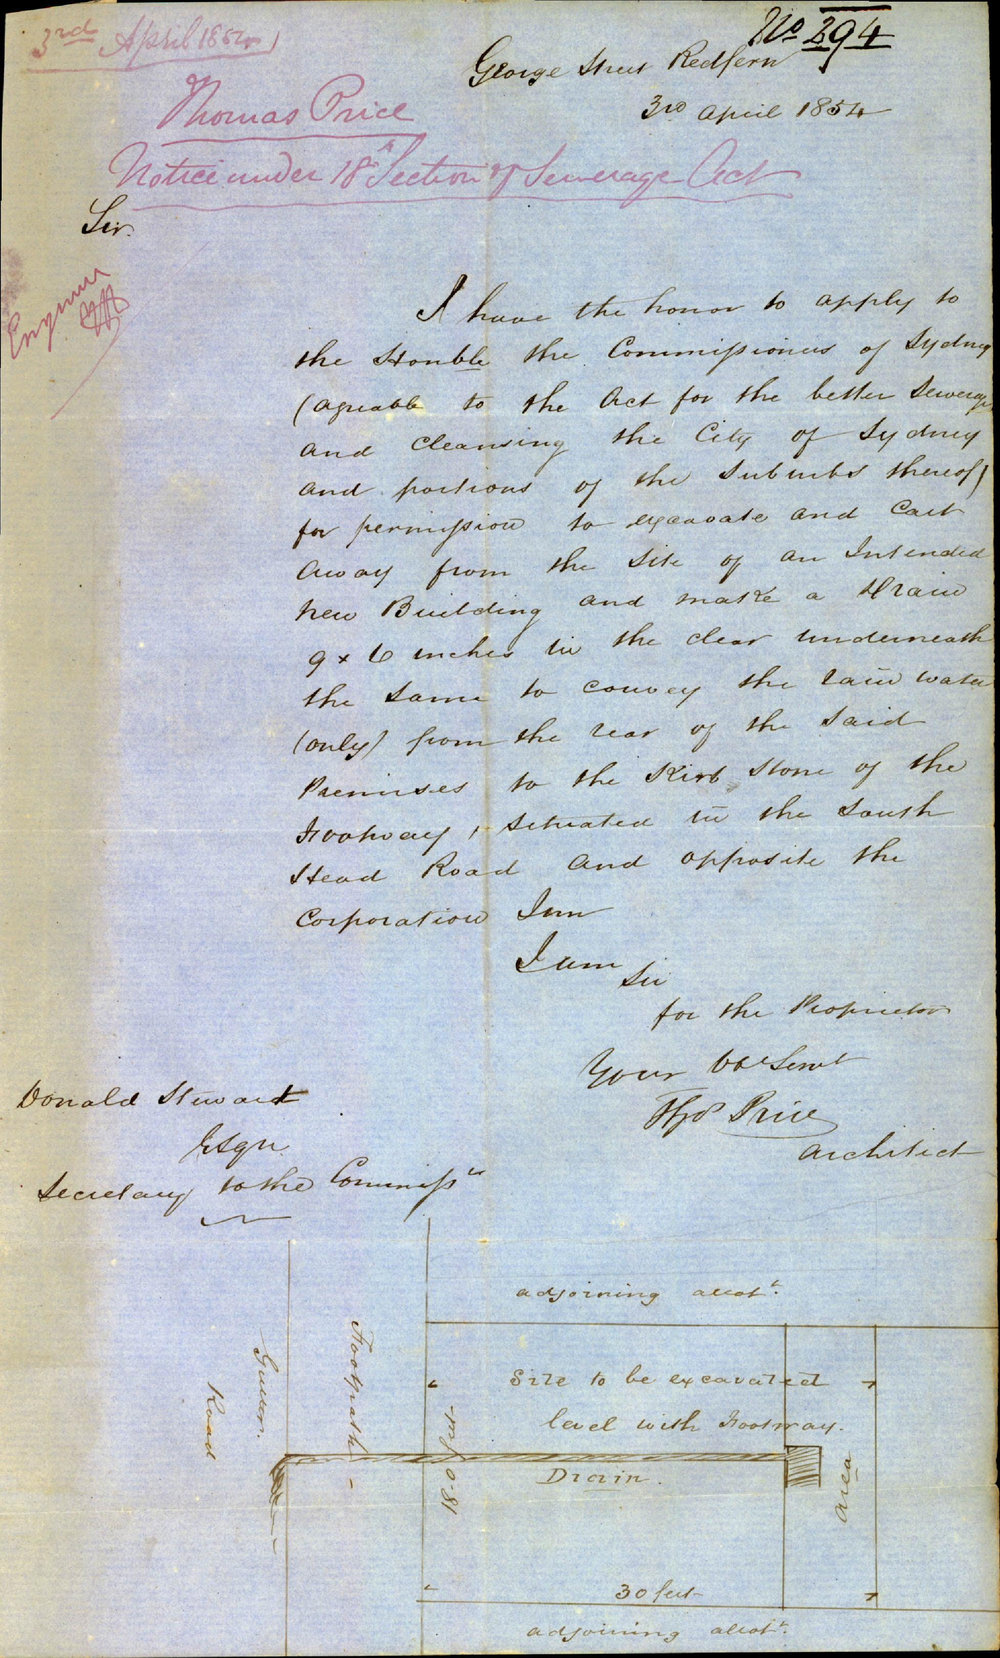 No 394
3rd April 1854
George Street Redfern
3rd April 1854
Thomas Price
Notice under 18th Section of Sewerage Act
Sir.
Engineer
I have the honor to apply to
the Honble the Commissioners of Sydney
(agreable to the Act for the better Sewerage
and Cleansing the City of Sydney
and portions of the Suburbs thereof)
for permission to excavate and Cart
away from the Site of an Intended
new Building and make a Drain
9 x 6 inches in the clear underneath
the same to convey the rain water
(only) from the rear of the said
Premises to the Kirb Stone of the
Footway, situated in the South
Head Road and opposite the
Corporation Inn
I am
Sir
for the Proprietor
Your Obt Servt
Thos Price
Architect
Donald Stewart
Esqr.
Secretary to the Commissrs
adjoining allott.
Site to be excavated
level with Footway.
Footpath
Gutter.
Road
18.0 ft
Drain.
area
30 feet
adjoining allott.